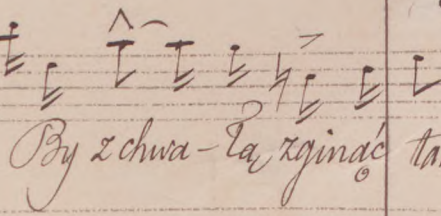 By z chwa-łą zginąć